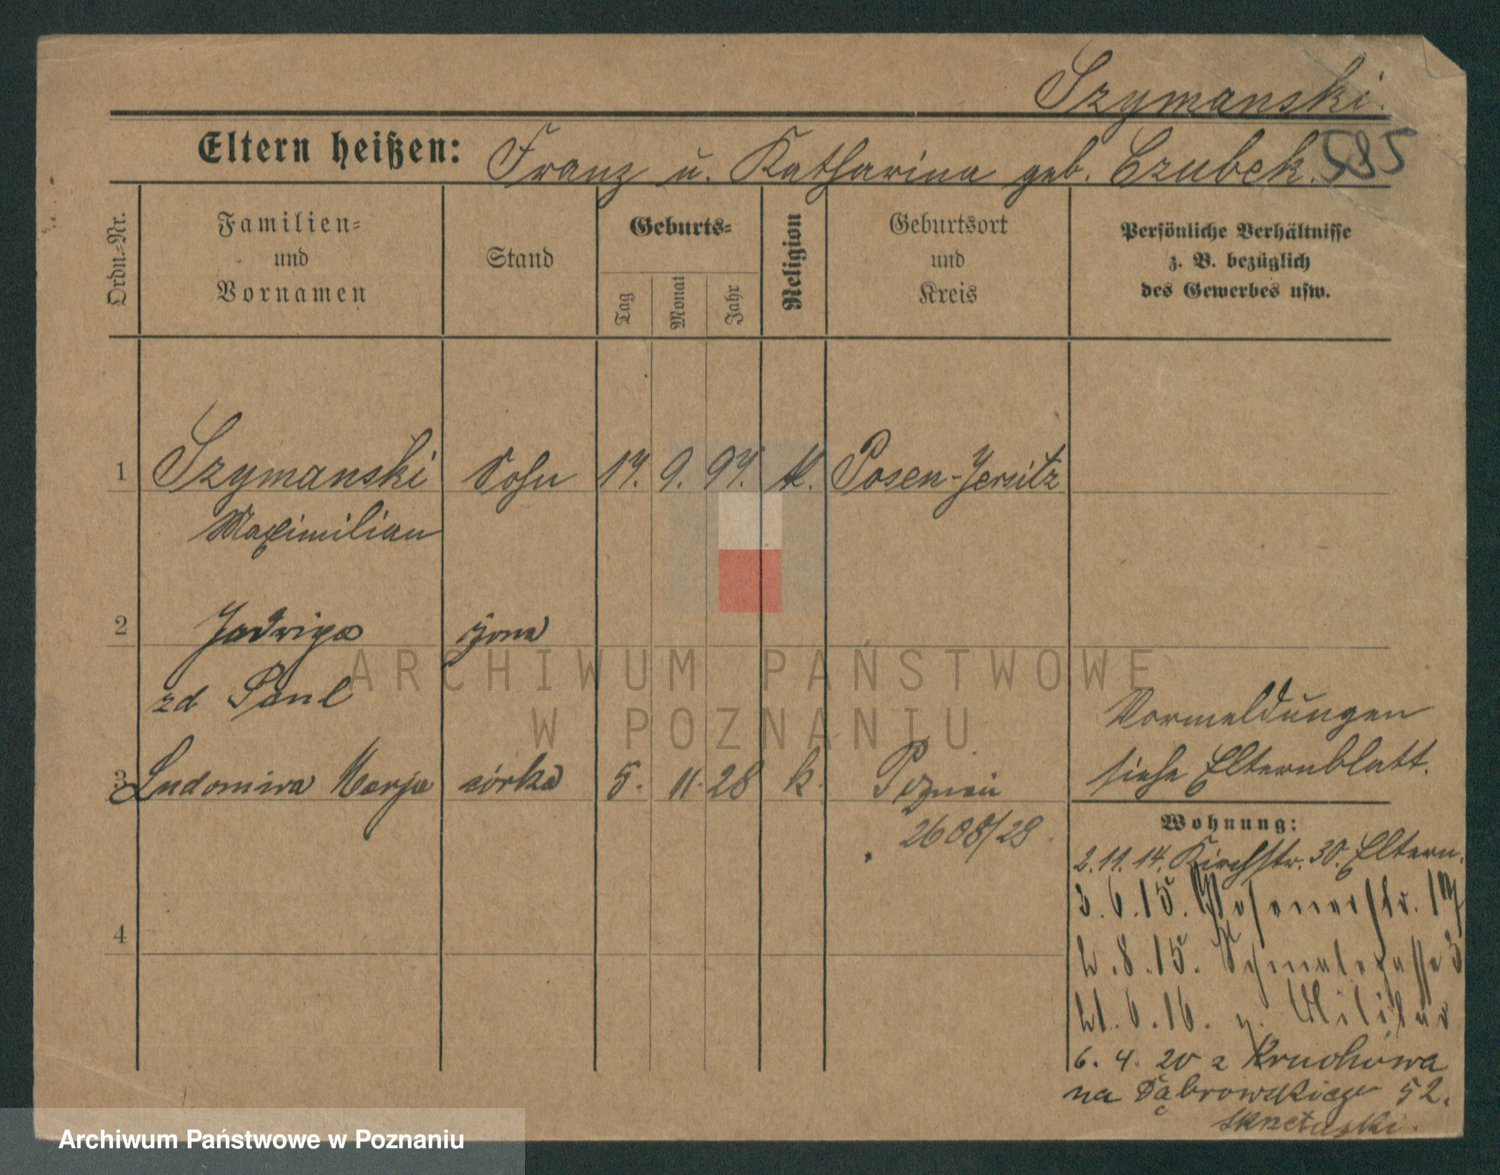 Szymanski.
Eltern heißen: Franz u. Katharina geb. Czubek. 585
Ordn.=Nr.
Familien=
und
Vornamen
Stand
Geburts=
Tag
Monat
Jahr
Religion
Geburtsort
und
Kreis
Persönliche Verhältnisse
z. B. bezüglich
des Gewerbes usw.
1 Szymanski Sohn 17. 9. 97. k. Posen-Jersitz
Maximilian
2 Jadwiga żona
zd Paul
ARCHIWUM PAŃSTWOWE
W POZNANIU
Vormeldungen
siehe Elternblatt.
3 Ludomira Marja córka 5. 11. 28 k. Poznań
2608/28
Wohnung:
2.11.14. Kirchstr. 30. Eltern.
3.6.15. Posenerstr.
2.8.15. 3
21.6.16. z. Militär
6. 4. 20 z Kruchowa
na Dąbrowskiego 52.
Skrzetuski.
4
Archiwum Państwowe w Poznaniu